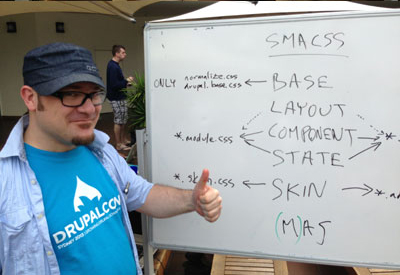 SMACSS
ONLY normalize.css
drupal.base.css
BASE
LAYOUT
*.module.css
COMPONENT
STATE
SKIN
(M)AS
DRUPALCON
SYDNEY 2013